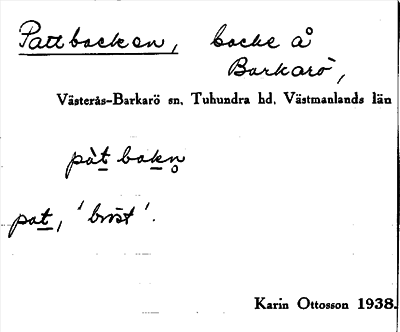 Pattbacken, backe å
Barkarö,
Västerås-Barkarö sn, Tuhundra hd, Västmanlands län
pàt bakn̥
pat, 'bröst'.
Karin Ottosson 1938.